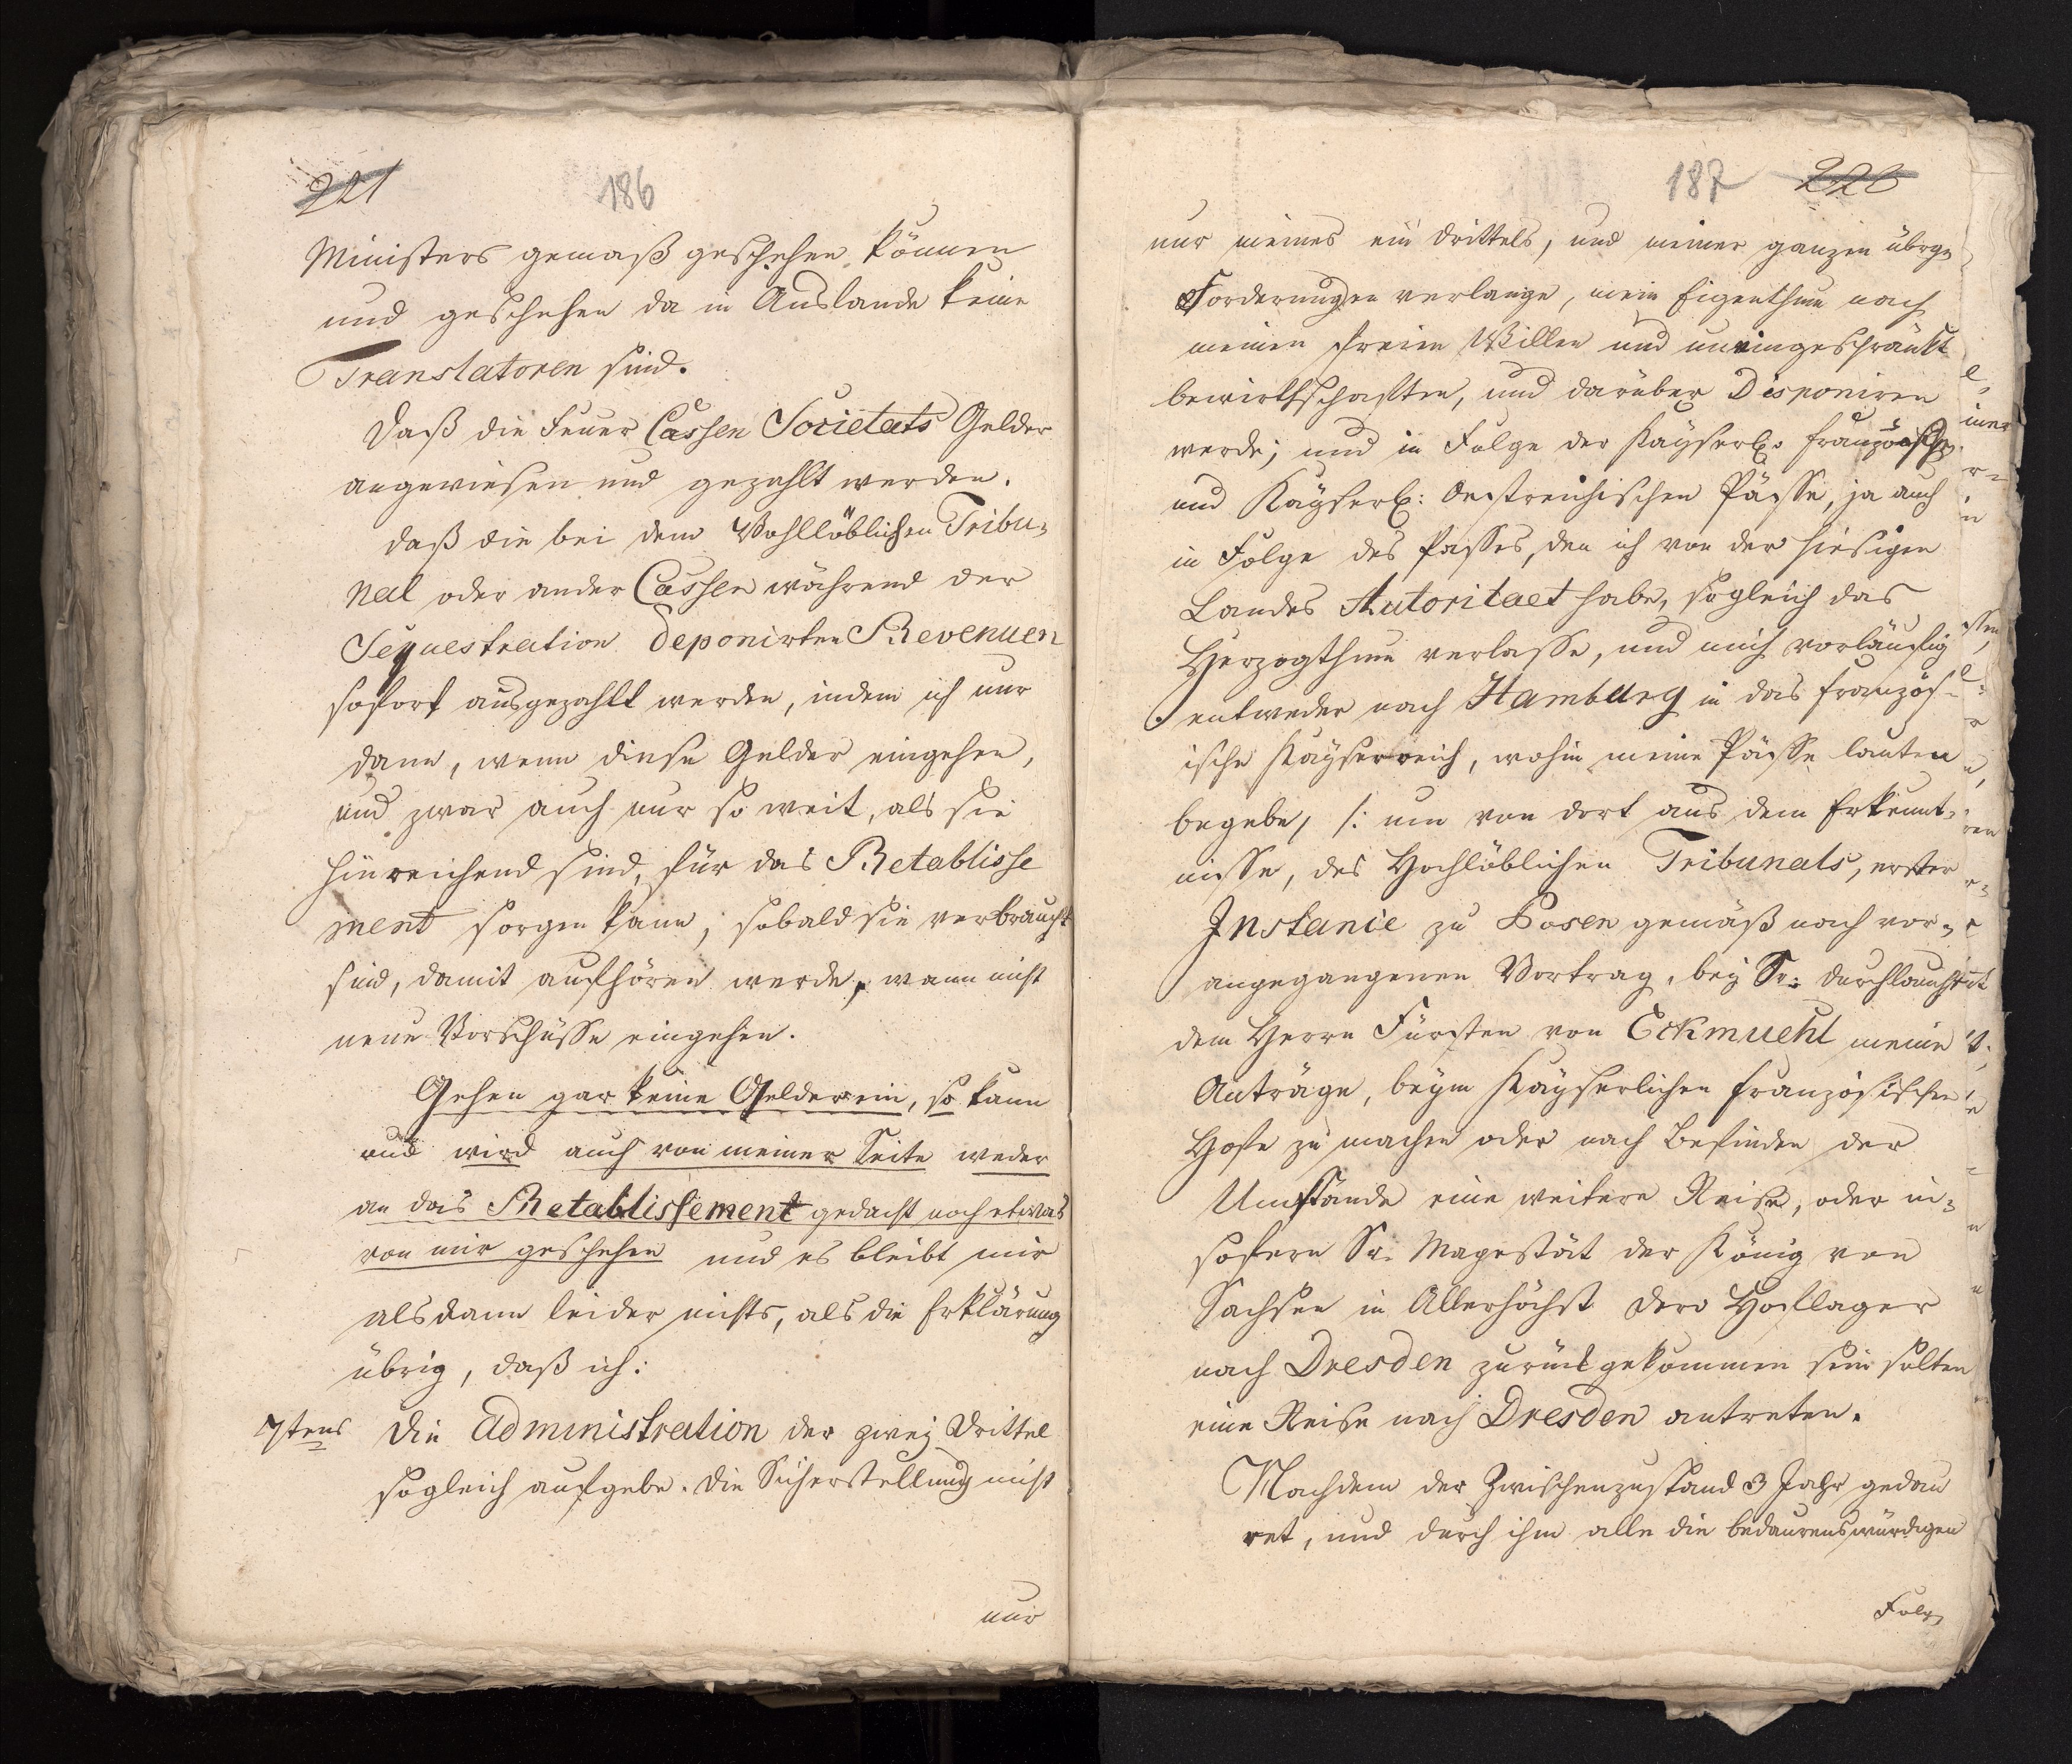 221
186
Ministers gemäß geschehen können
und geschehen da in Auslande keine
Translatoren sind.
Daß die Feuer Cassen Societæts Gelder
angewiesen und gezahlt werden.
daß die bei dem Wohllöblichen Tribu-
nal oder ander Cassen während der
Sequestration deponirten Revenuen
sofort ausgezahlt werden, indem ich nur
dann, wenn diese Gelder eingehen,
und zwar auch nur so weit, als sie
hinreichend sind, für das Retablisse
ment sorgen kann, sobald sie verbraucht
sind, damit aufhören werde, wann nicht
neue Vorschüsse eingehen.
Gehen gar keine Gelder ein, so kann
und wird auch von meiner Seite weder
an das Retablissement gedacht noch etwas
von mir geschehen und es bleibt mir
alsdann leider nichts, als die Erklärung
übrig, daß ich:
7tens die Administration der zwej Drittel
sogleich aufgebe. Die Sicherstellung nicht
nur
187
226
nur meines ein Drittels, und meiner ganzen übrgn
Forderungen verlange, mein Eigenthum nach
meinen freien Willen und uneingeschränkt
bewirthschaften, und darüber Disponiren
werde; und in Folge der Kayserl: französische
und Kayserl: Oestreichischen Pässe, ja auch
in Folge des Passes, den ich von der hiesigen
Landes Autoritaet habe, sogleich das
Herzogthum verlasse, und mich vorläufig
entweder nach Hamburg in das französ-
ische Kayserreich, wohin meine Pässe lauten
begebe, /: um von dort aus dem Erkennt-
nisse, des Hochlöblichen Tribunals, erster
Instanie zu Posen gemäß nach vor-
angegangenen Vortrag, bey Sr: Durchlaucht
dem Herrn Fürsten von Eckmuehl meine
Anträge, beym Kayserlichen französischen
Hofe zu machen oder nach Befinden der
Umstände eine weitere Reise, oder in-
sofern Sr. Magestät der König von
Sachsen in Allerhöchst Dero Hoflager
nach Dresden zurück gekommen sein solten
eine Reise nach Dresden antreten.
Nachdem der Zwischenzustand 3 Jahr gedau
ret, und durch ihm alle die bedaurenswürdigen
Folgn